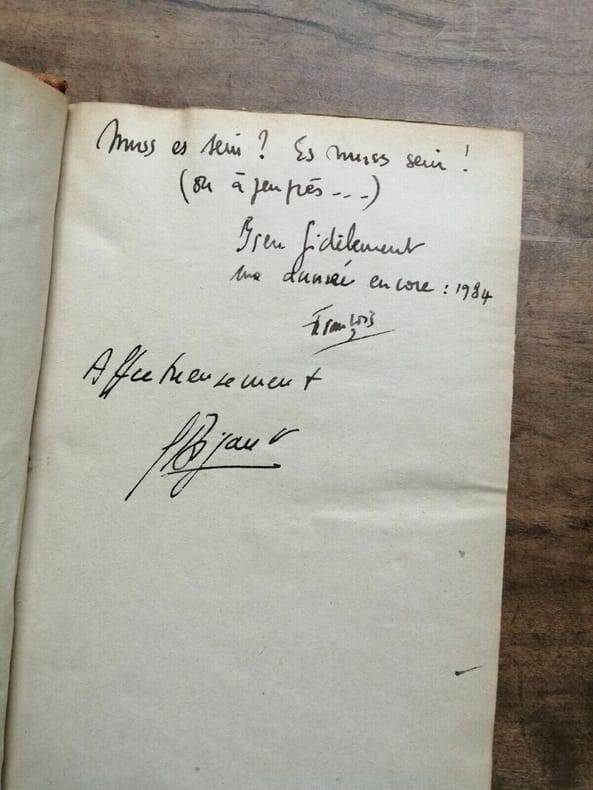 Muss es sein ? Es muss sein !
(ou à peu près ---)
Bien fidèlement
une année encore : 1984
François
Affectueusement